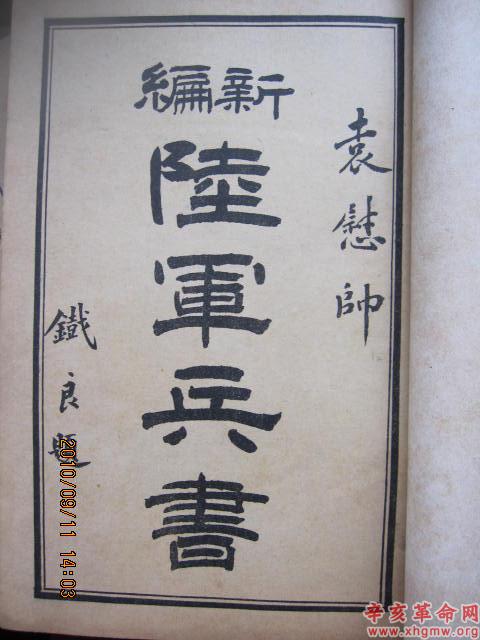 袁慰帥
新編
陸軍兵書
鐵良題
2010/09/11 14:03
辛亥革命网
www.xhgmw.org